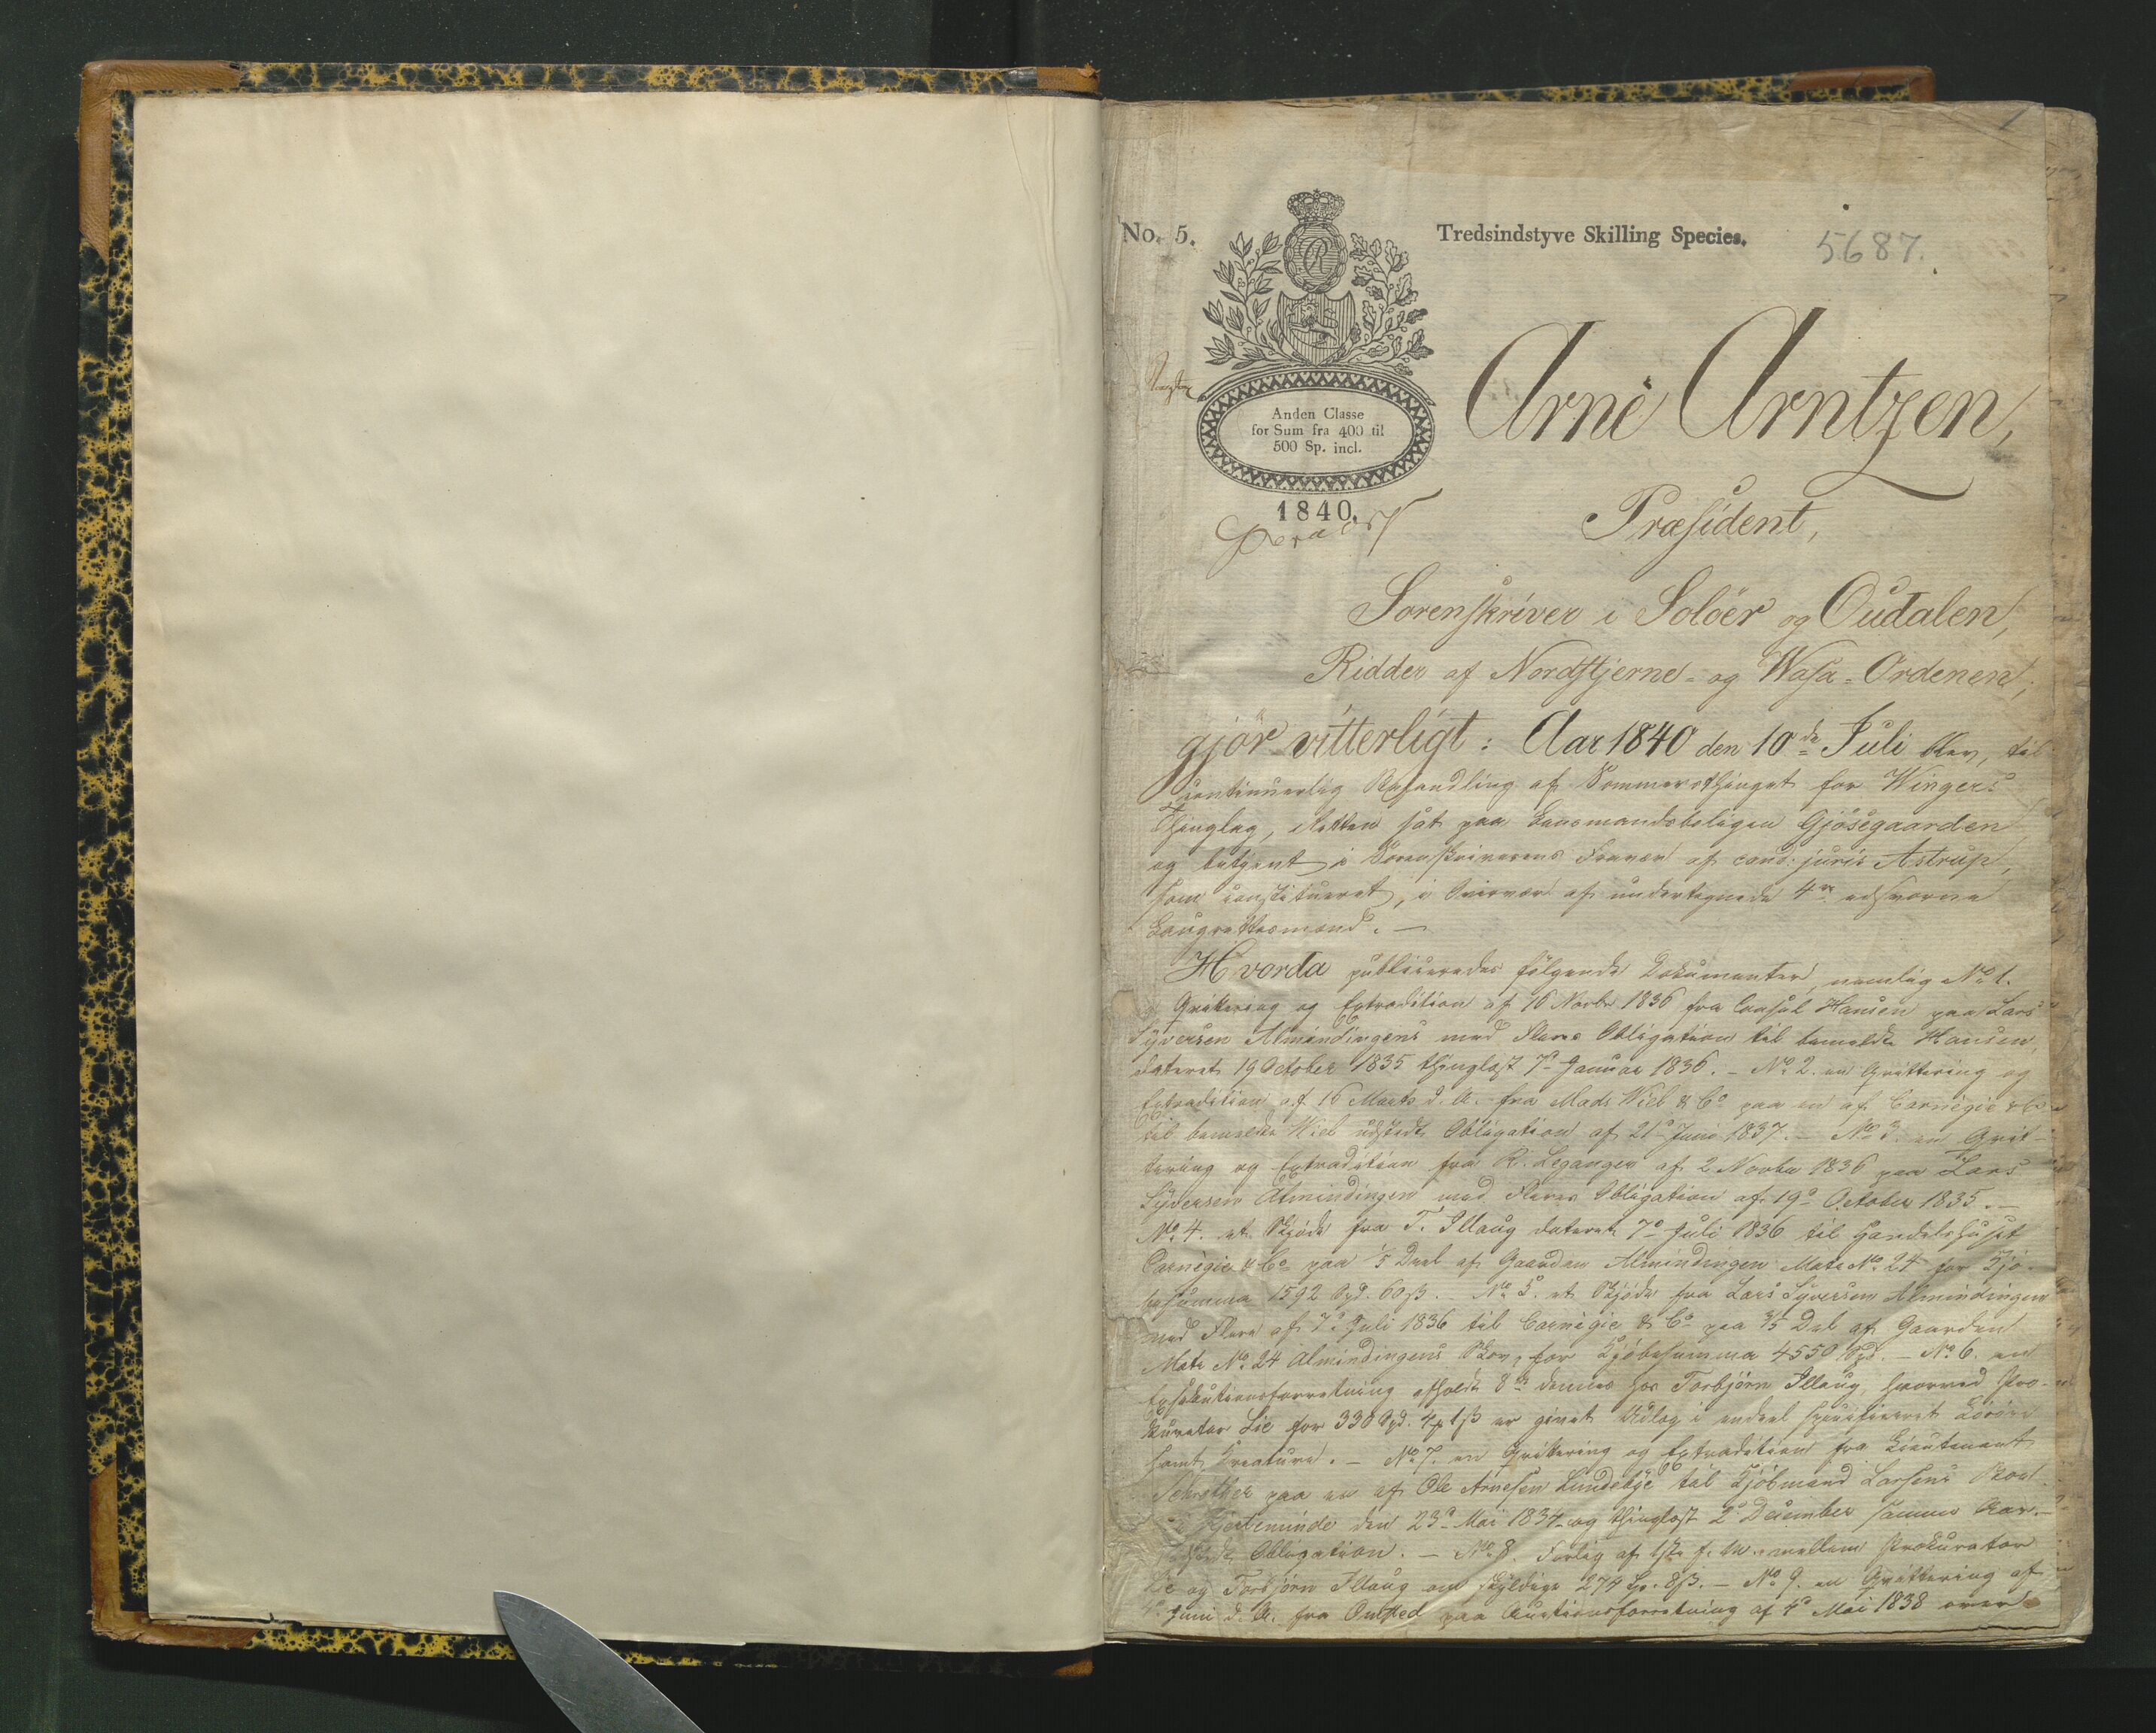 1
No. 5.
Tredsindstyve Skilling Species.
5687.
R
Anden Classe
for Sum fra 400 til
500 Sp. incl.
1840.
Arne Arntzen,
Præsident,
Sorenskriver i Soløer og Oudalen,
Ridder af Nordstjerne- og Wasa-Ordenen,
gjør vitterligt: Aar 1840 den 10de Juli blev, til
continuerlig Behandling af Sommerthinget for Wingers
Thinglag, Retten sat paa Lensmandsboligen Gjøsegaarden
og betjent i Sorenskriverens Fravær af cand: juris Astrup,
som constitueret, i Overvær af undertegnede 4re edsvorne
Laugrettesmænd. —
Hvorda publiceredes følgende Dokumenter, nemlig No 1.
Qvittering og Extradition af 16 Novbr 1836 fra Consul Hansen paa Lars
Syversen Almindingens med Fleres Obligation til bemeldte Hansen,
dateret 19 October 1835 thinglæst 7de Januar 1836. — No 2. en Qvittering og
Extradition af 16 Marts d. A. fra Mads Wiel & Co paa en af Carnegie & Co
til bemeldte Wiel udstedt Obligation af 21de Juni 1837. — No 3. en Qvit-
tering og Extradition fra R. Leganger af 2 Novbr 1836 paa Lars
Syversen Almindingen med Fleres Obligation af 19de October 1835. —
No 4. et Skjøde fra T. Illaug dateret 7de Juli 1836 til Handelshuset
Carnegie & Co paa 1/5 Deel af Gaarden Almindingen Matr No 24 for Kjø-
besumma 1592 Spd. 60 ß. — No 5. et Skjøde fra Lars Syversen Almindingen
med Flere af 7de Juli 1836 til Carnegie & Co paa Deel af Gaarden
Matr No 24 Almindingens Skov, for Kjøbesumma 4550 Spd. — No 6. en
Exsekutionsforretning afholdt 8de dennes hos Torbjørn Illaug, hvorved Pro-
kurator Lie for 330 Spd. er givet Udlæg i endeel specificeret Løsøre
samt Kreature. — No 7. en Qvittering og Extradition fra Lieutenant
Schrøtter paa en af Ole Arnesen Lundebye til Kjøbmand Larsens
i Kjerteminde den 23de Mai 1834 og thinglæst 2de December samme Aar
udstedt Obligation. — No 8. Forlig af 1ste f. M. mellem Prokurator
Lie og Torbjørn Illaug om skyldige 274 Sp. 8 ß. — No 9. en Qvittering af
4de Juni d. A. fra Omsted paa Auctionsforretning af 4de Mai 1838 over